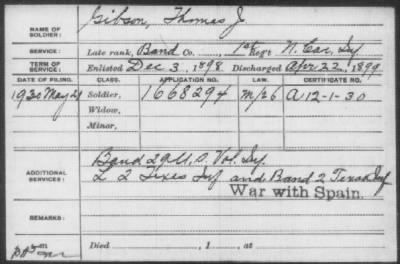 NAME OF SOLDIER: Gibson, Thomas J.
SERVICE: Late rank, Band Co. , 1st Reg't N. Car. Inf
TERM OF SERVICE: Enlisted Dec 3, 1898 Discharged Apr. 22, 1899
DATE OF FILING. CLASS. APPLICATION NO. LAW. CERTIFICATE NO.
1930 May 29 Soldier, 1668294 M/26 A 12-1-30
Widow,
Minor,
ADDITIONAL SERVICES: Band 29 U.S. Vol. Inf.
L 2 Texes Inf and Band 2 Texas Inf
War with Spain.
REMARKS:
Died , 1 , at